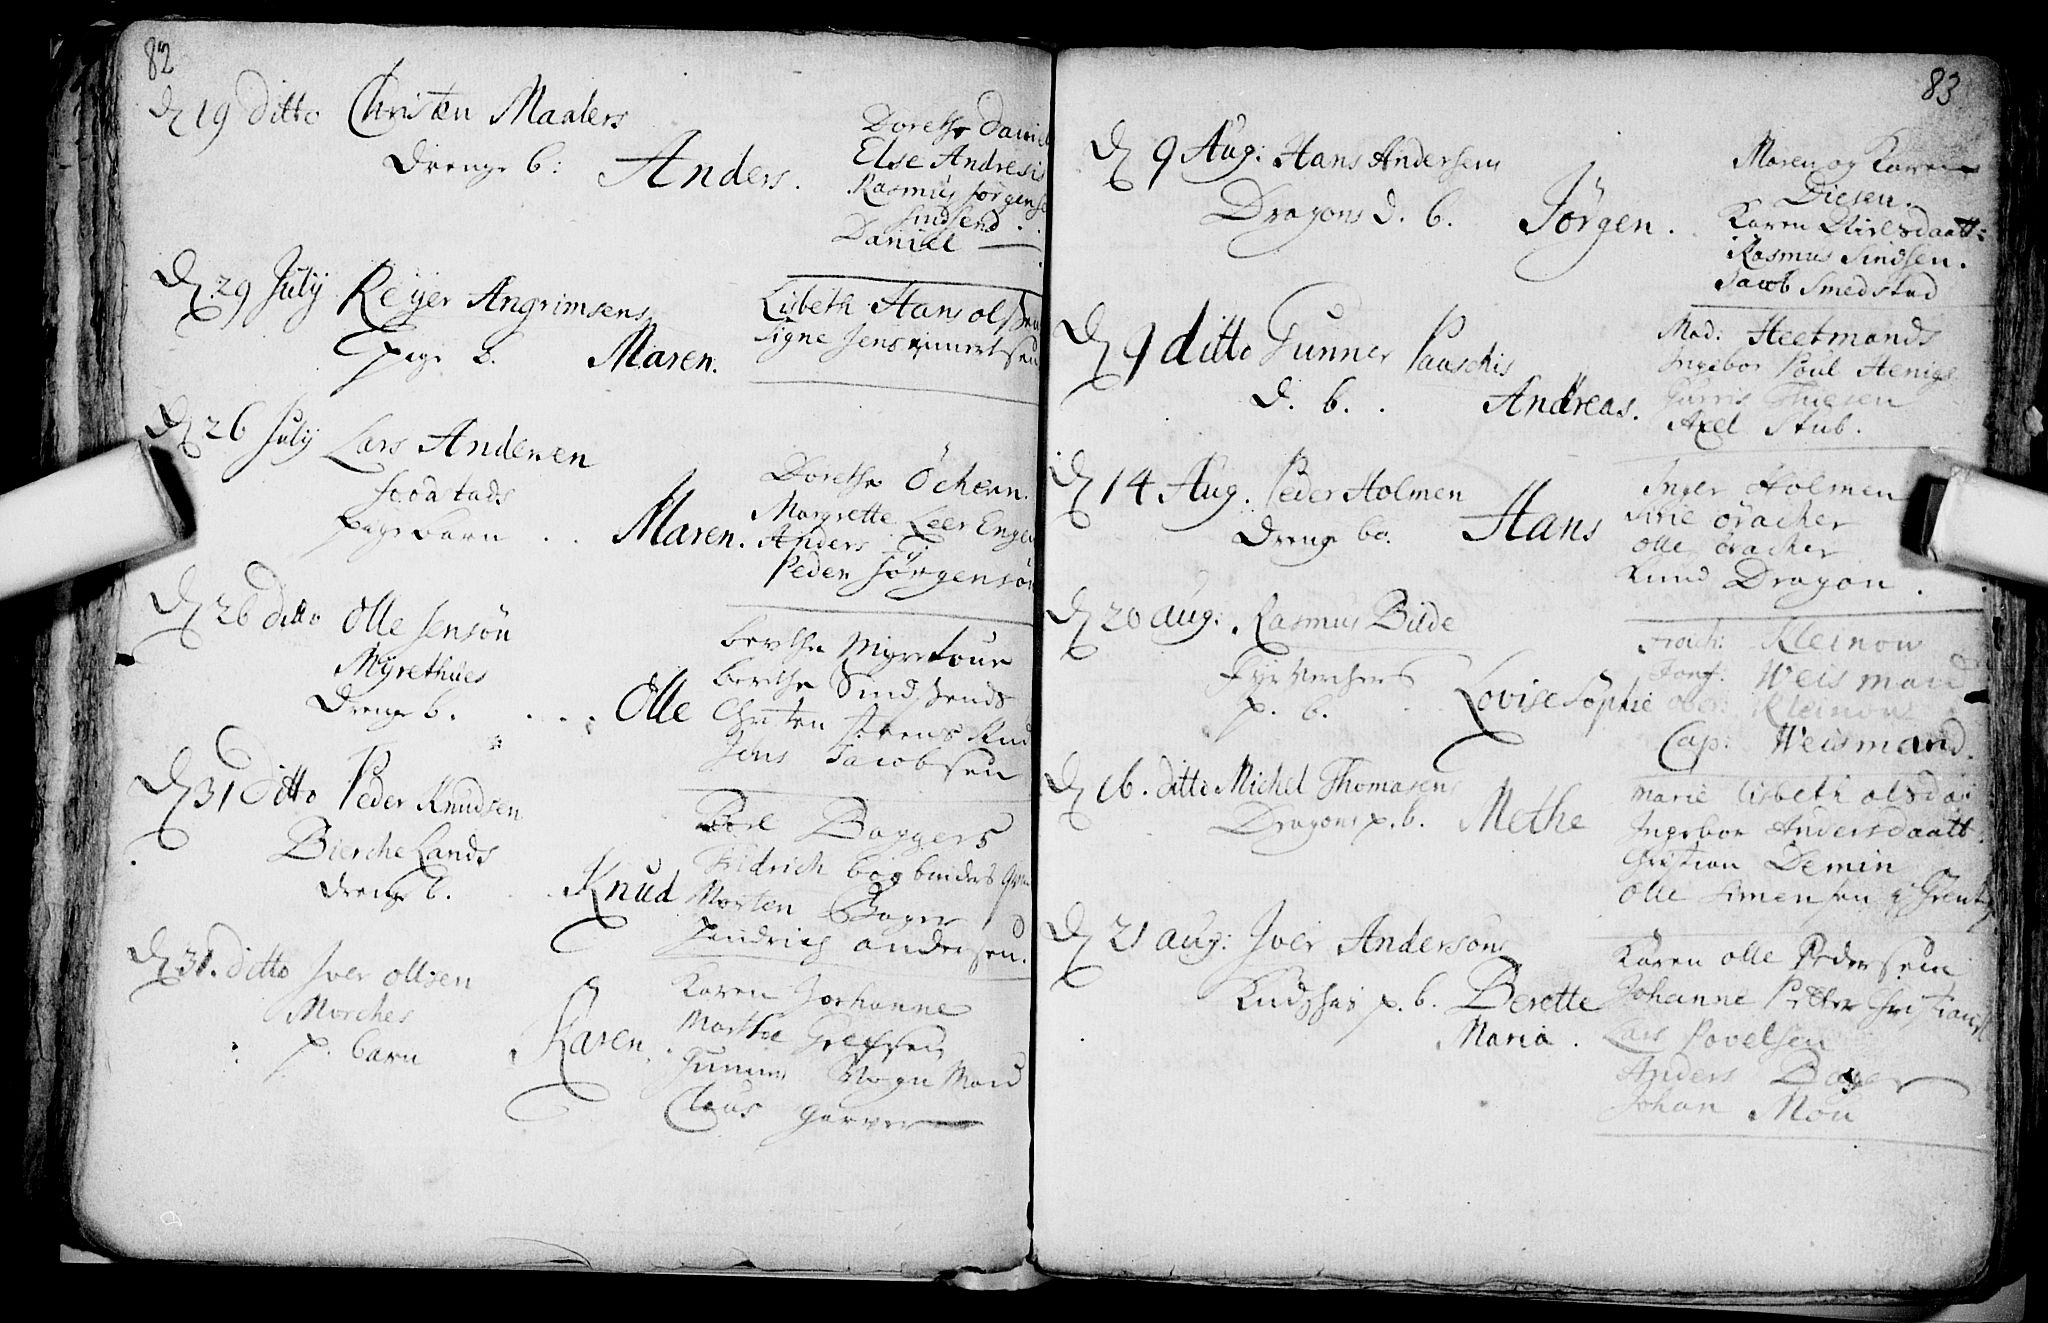 82
D 19 Ditto Christen Maalers
Drenge b: Anders.
Dorethe Daniels
Else Andresis
Rasmus Jörgens
Sindsend
Daniel
D 29 July Reyer Angrimsens
Pige b. Maren.
Lisbeth Hans olsen
Signe Jens
D 26 July Lars Andersen
Pige barn . . Maren.
Dorethe Öchern.
Margrette Leer Enger
Anders
Peder Jörgensön
D 26 ditto Olle Jensön
Myrehues
Drenge b. . . . Olle
berthe Myrehue
berthe Sindsends
Christen
Jens Jacobsen
D 31 Ditto Peder Knudsen
Bierche Lands
drenge b. Knud
Boggers
Fridrich bogbinders
Morten Boger
Hendrich andersen.
D 31. Ditto Iver ollsen
Morches
p. barn Karen.
Karen Johanne
Marthe
Gunner Vogn Mand
Claus garver
83
D 9 Aug: Hans Andersens
Dragons d. b. Jörgen.
Maren og Karen
Diesen.
Karen Nielsdaatt:
Rasmus Sindsen.
Jacob Smedstad
D 9 ditto Gunner Pauschis
d. b. . Andreas.
Mad. Heetmands
Ingebor Poul Henigs
Thuesen
Axel Stub.
D 14 Aug. Peder Holmen
Drenge ba. Hans
Inger Holmen
Sirie öracher
olle öracher
Knud Dragon.
D 20 aug: Rasmus Bilde
Fyrverchers
p. b. Lovise Sophie
Kleinow
Jomf: Weismand
ober: Kleinow
Cap: Weismand.
D 16. ditto Michel Thomasens
Dragons p. b. Methe
Marie Lisbeth olsda
Ingebor Andersdaatt:
Christian Demin
olle Simensen
D 21 aug: Iver Andersons
p. b. Berette
Maria.
Karen olle Pedersen
Johanne Petter Christians
Lars Povelsen
Anders Boyer
Johan Mou